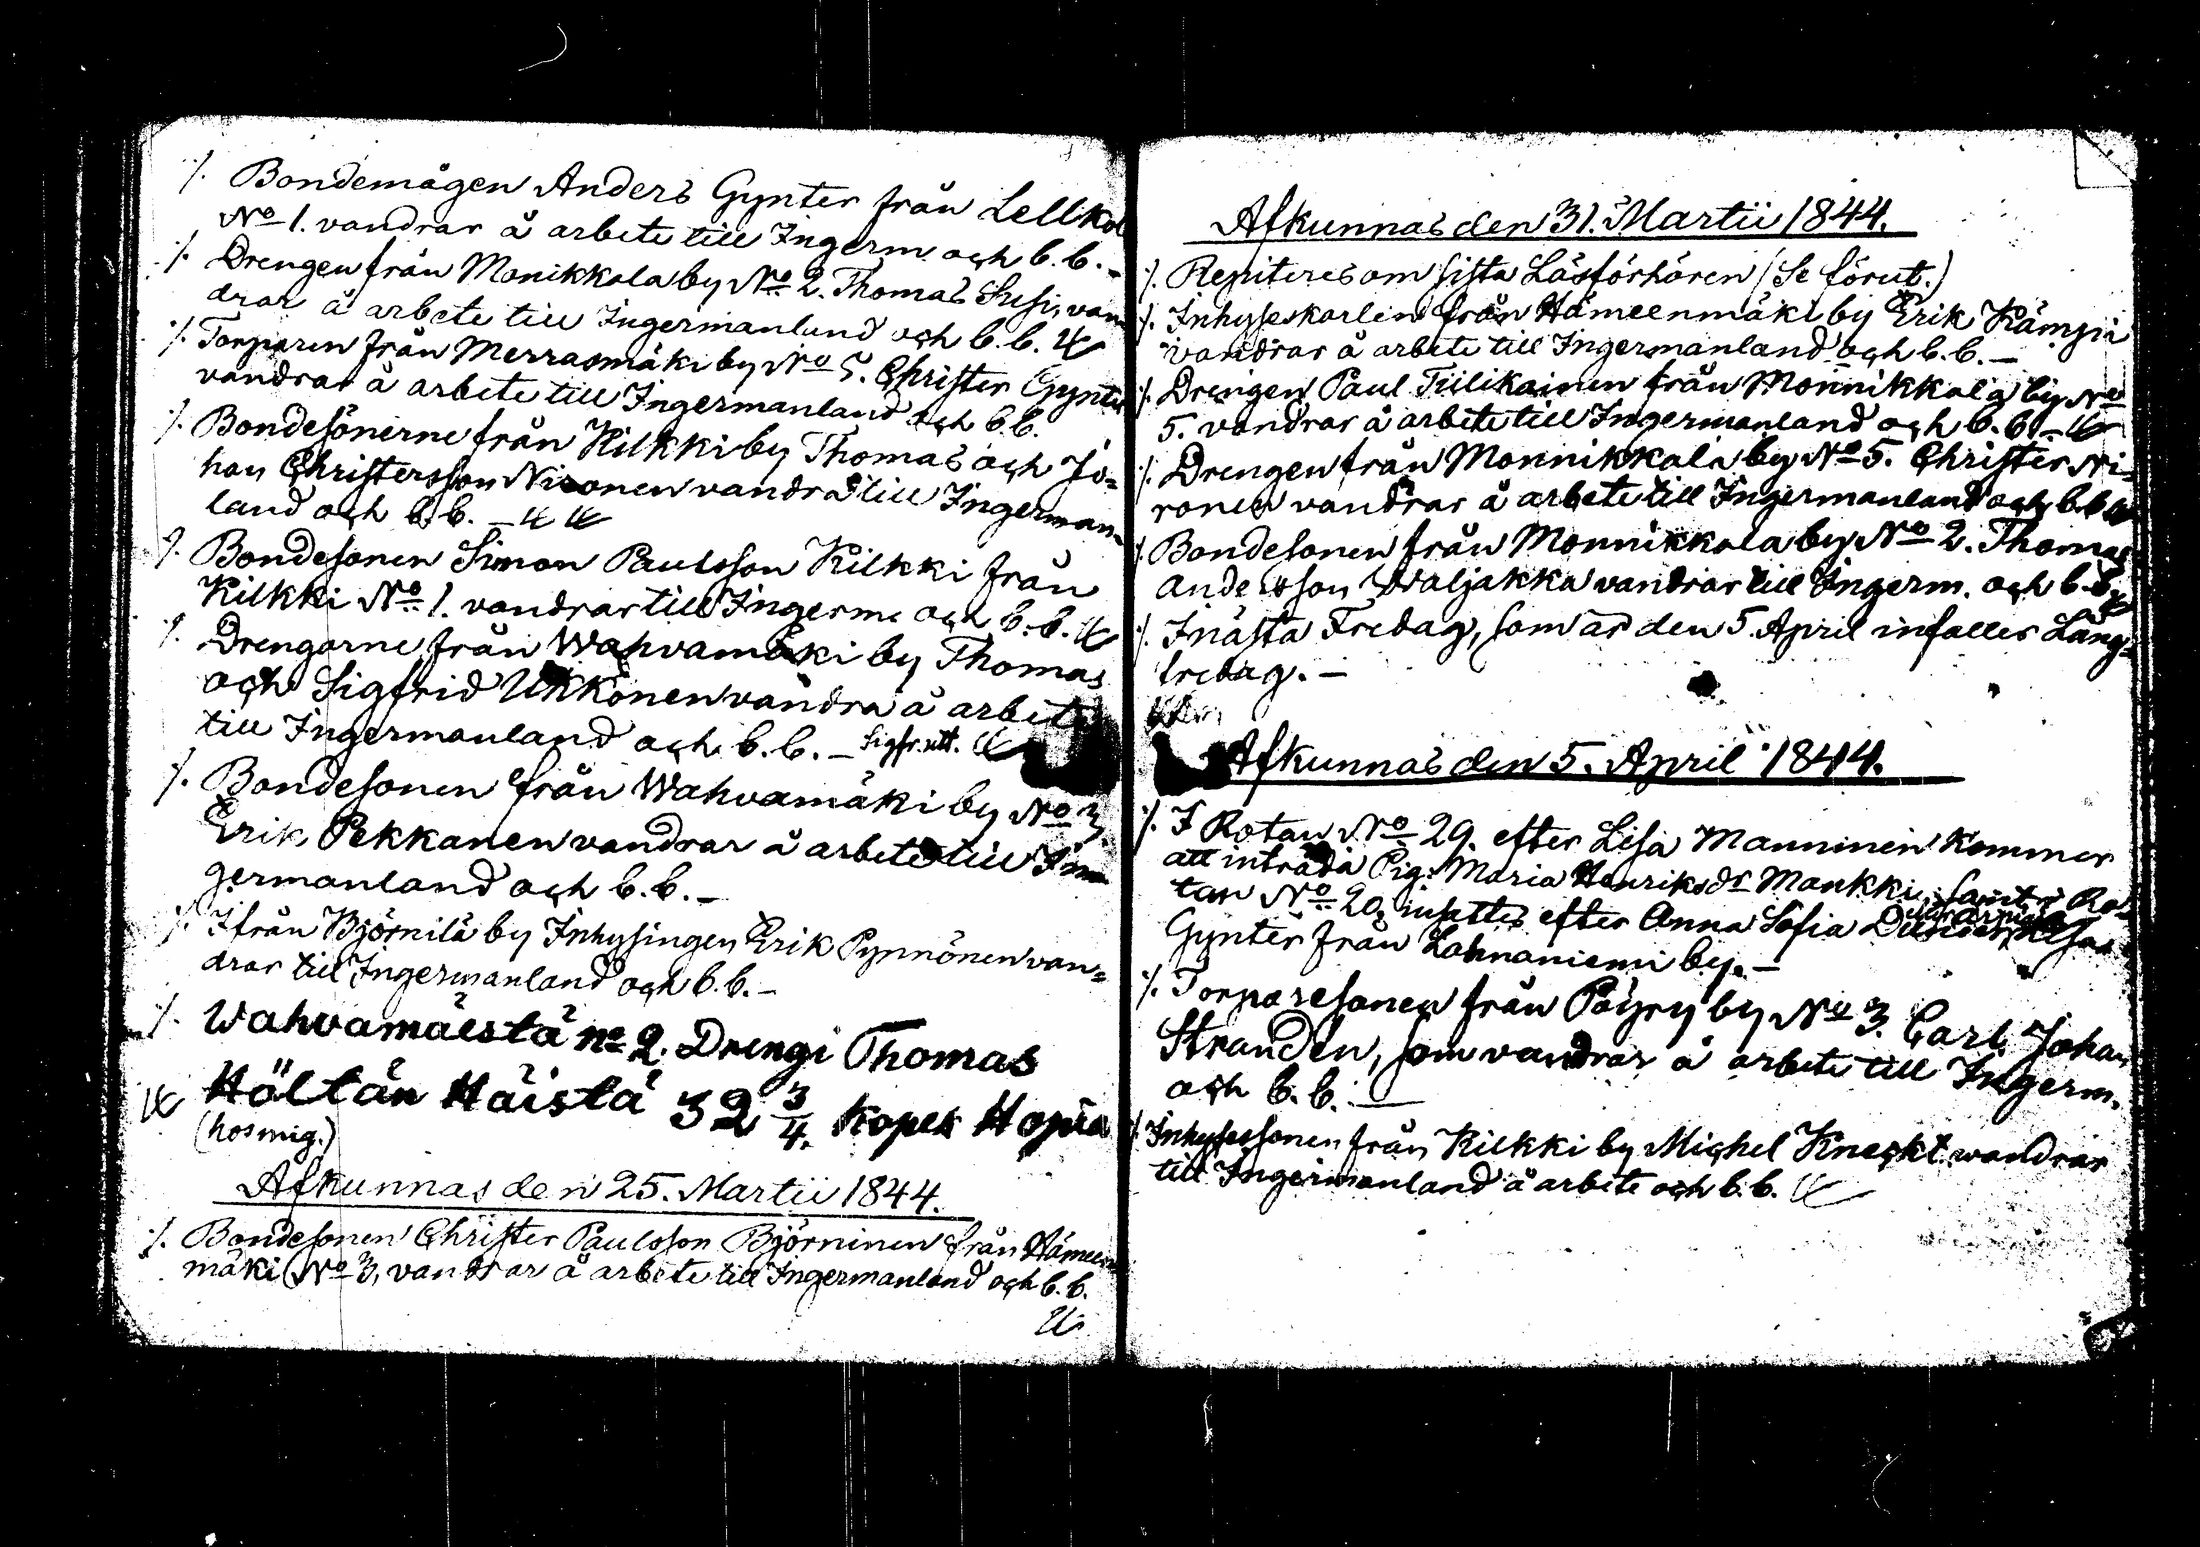 ·/. Bondemågen Anders Gynter från Lellkol
No 1. vandrar å arbete till Ingerm. och b.b. –
·/. Drengen från Monikkala by No 2. Thomas Susi, van-
drar å arbete till Ingermanland och b.b.
·/. Torparen från Merrasmäki by No 5. Christer Gynter
vandrar å arbete till Ingermanland och b.b.
·/. Bondesönerne från Kilkki by Thomas och Jo=
han Christersson Nironen vandra till Ingerman-
land och b.b. –
·/. Bondesonen Simon Paulsson Kilkki från
Kilkki No 1. vandrar till Ingerm. och b.b.
·/. Drengarne från Wahvamäki by Thomas
och Sigfrid Ukkonen vandra å arbete
till Ingermanland och b.b. – Sigfr. utt.
·/. Bondesonen från Wahvamäki by No 3
Erik Pekkanen vandrar å arbete till In
germanland och b.b. –
·/. Ifrån Björnilä by Inhysingen Erik Pynnönen van=
drar till Ingermanland och b.b. –
·/. Wahvamäestä no 2. Drengi Thomas
Höltän Häistä 32 3/4. Kopek Hopia
(hos mig.)
Afkunnas den 25. Martii 1844.
·/. Bondesonen Christer Paulsson Björninen från Hämeen
mäki No 3, vandrar å arbete till Ingermanland och b.b.
Afkunnas den 31. Martii 1844.
·/. Repiteres om sista Läsförhören (Se förut.)
·/. Inhyseskarlen från Hämeenmäki by Erik Kämpii
vandrar å arbete till Ingermanland och b.b. –
·/. Drengen Paul Tiilikainen från Monnikkala by No
5. vandrar å arbete till Ingermanland och b.b. –
·/. Drengen från Monnikkala by No 5. Christer Ni-
ronen vandrar å arbete till Ingermanland och b.b.
·/. Bondesonen från Monnikkala by No 2. Thomas
Andersson Waljakka vandrar till Ingerm. och b.b.
·/. I nästa Fredag, som är den 5 April infaller Lång=
fredag. –
Afkunnas den 5. April 1844.
·/. I Rotan No 29. efter Lisa Manninen kommer
att inträda Pig. Maria Henriksdr Mankki, samt i Ro-
tan No 20. insättes efter Anna Sofia
Gynter från Lahnaniemi by. –
·/. Torparesonen från Päyry by No 3. Carl Johan
Strandén, som vandrar å arbete till Ingerm.
och b.b. –
·/. Inhysessonen från Kilkki by Michel Kneckt wandrar
till Ingermanland å arbete och b.b.